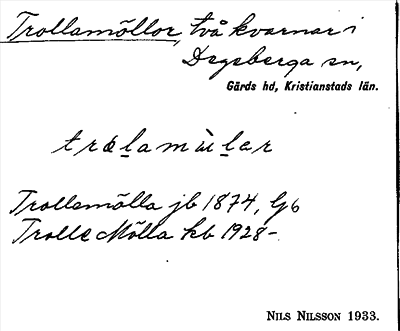 Trollamöllor, två kvarnar i
Degeberga sn,
Gärds hd, Kristianstads län.
trɷl̲amùl̲ar
Trollemölla jb 1874, G6
Trolle Mölla kb 1928-
NILS NILSSON 1933.